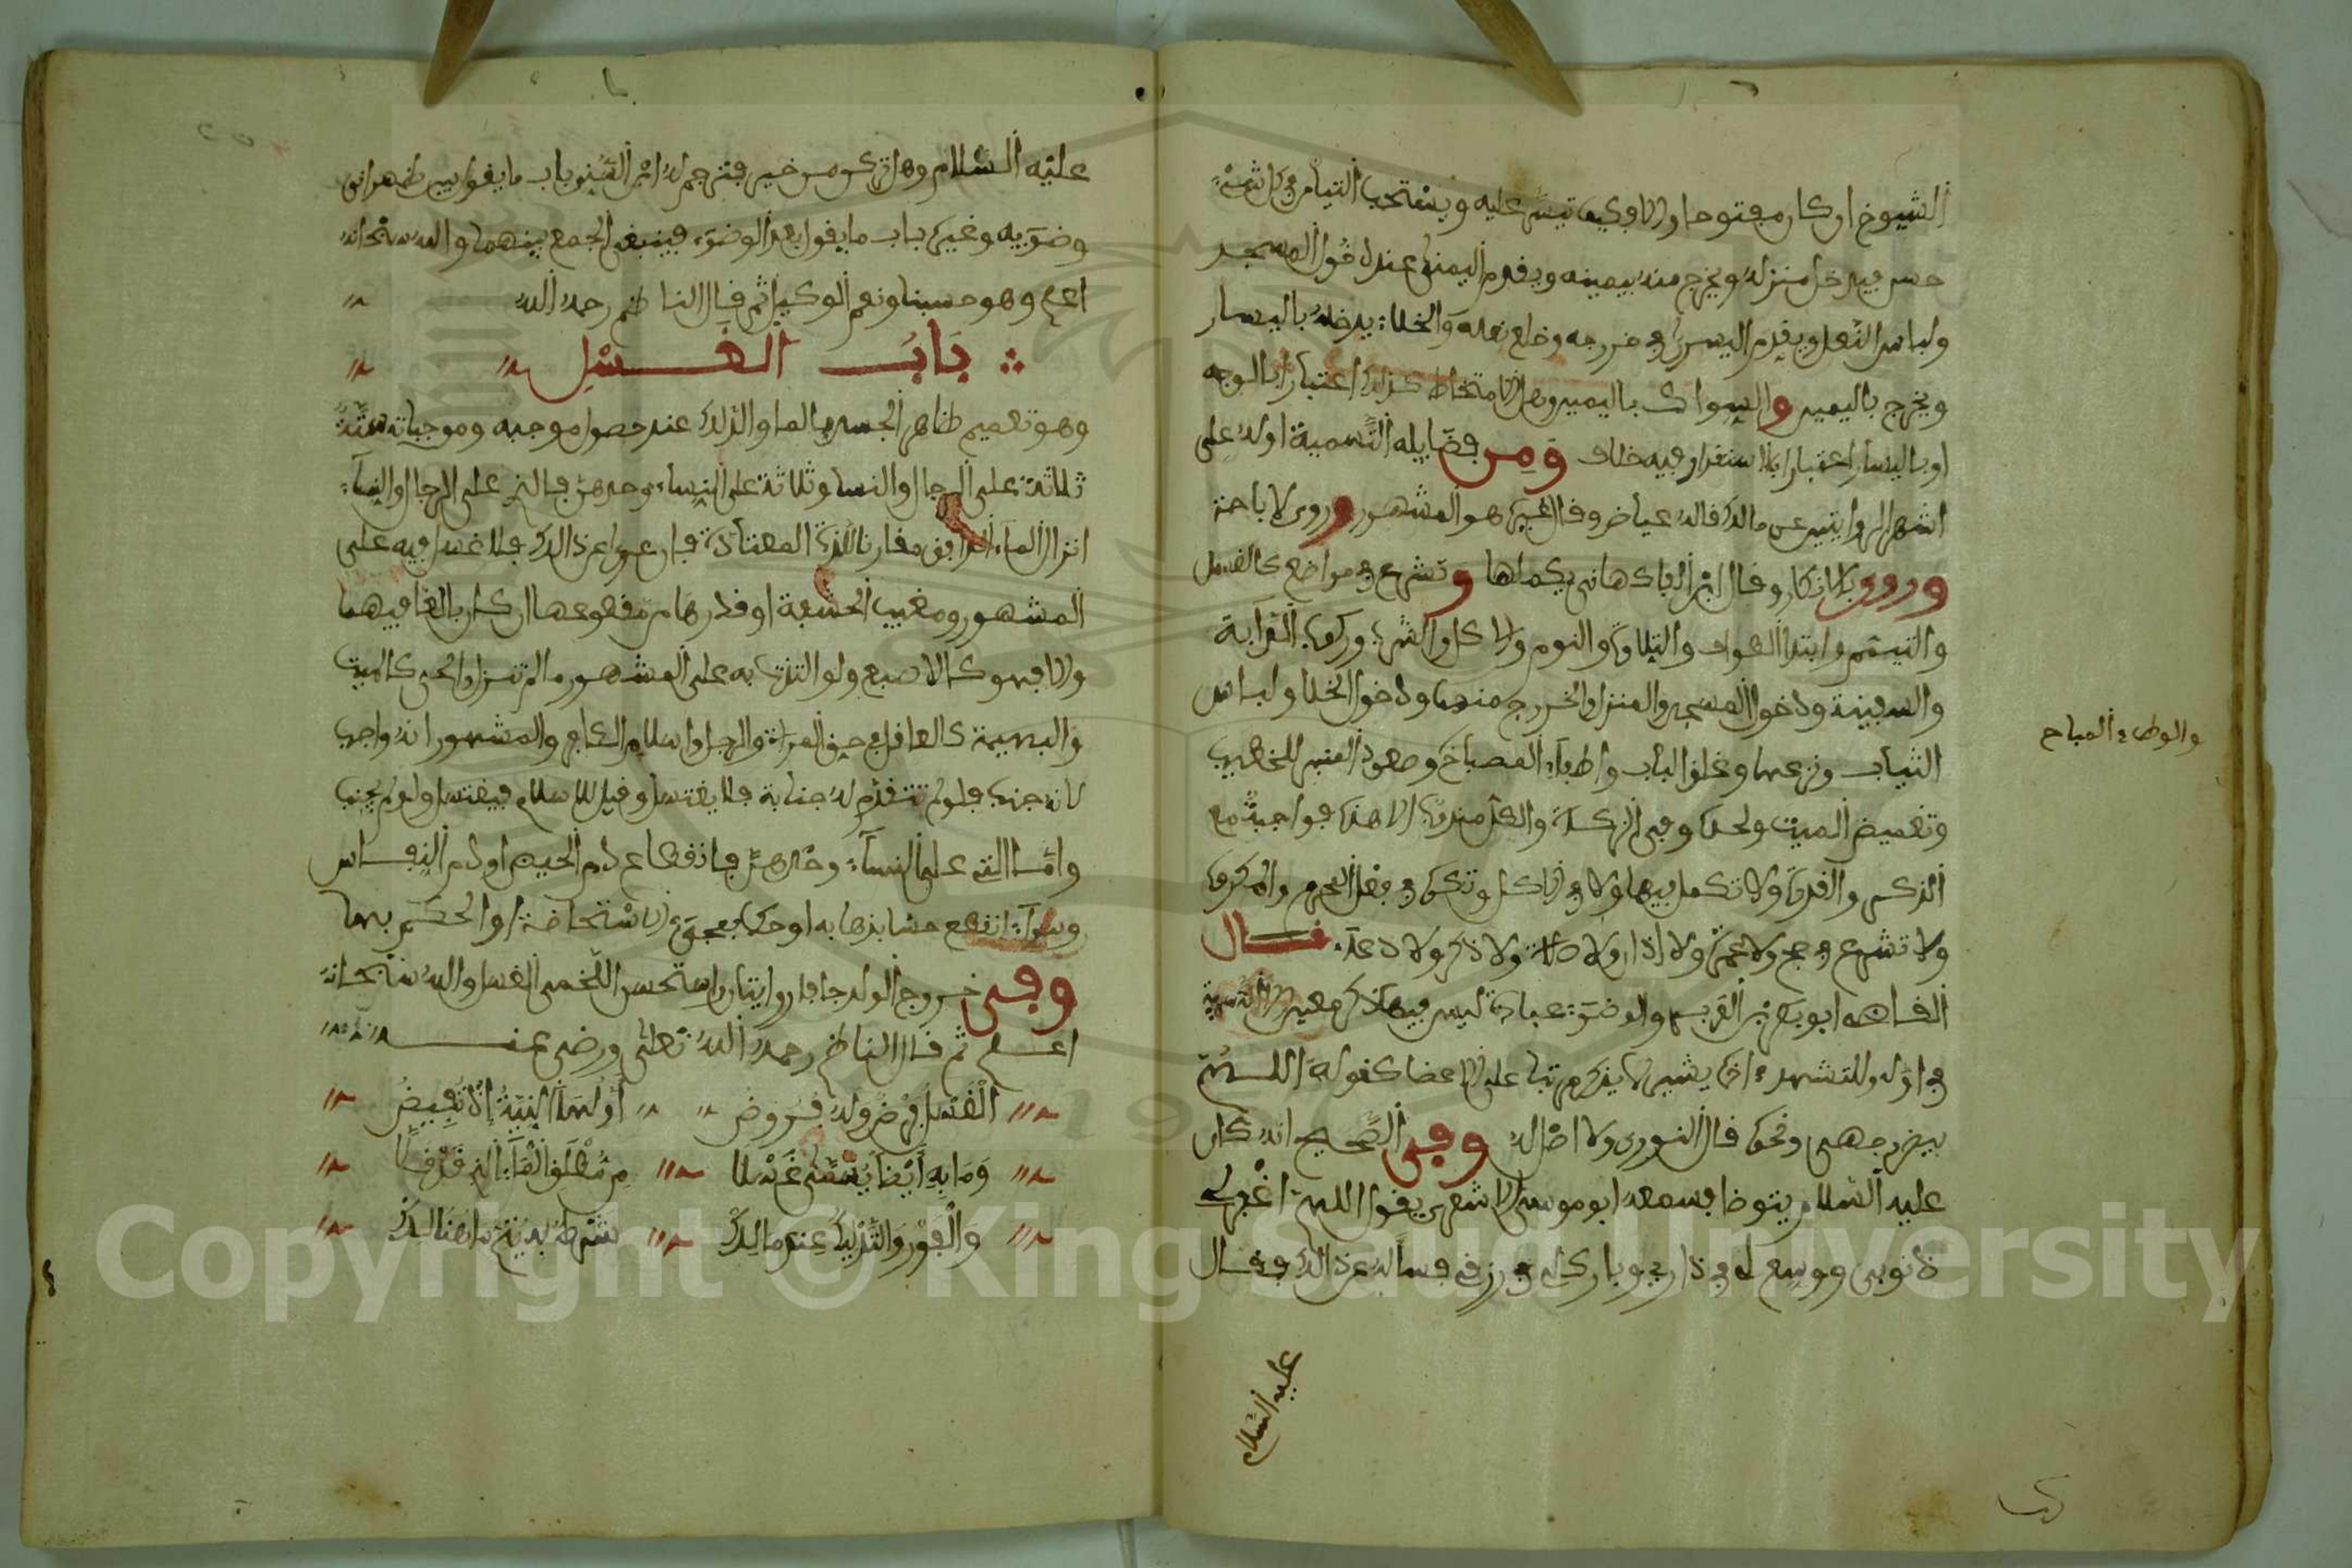 الشيوخ ان كان مفتوحا والا فكيف تيسر عليه ويستحب التيامن في كل شيء
حسن فيدخل منزله ويخرج منه بيمينه ويقدم اليمنى عند دخول المسجد
ولباس النعل ويقدم اليسرى في خروجه وخلع نعله والخلاء يدخله باليسار
ويخرج باليمين والسواك باليمين وهل الامتخاط كذلك اعتبارا بالوجه
او باليسار اعتبارا بالاستقذار فيه خلاف ومن فضايله التسمية اوله على
اشهر الروايتين عن مالك قاله عياض وقال غيره هو المشهور وروي الاباحة
وروي الانكار وقال ابن الفاكهاني يكملها وتشرع في مواضع كالغسل
والتيمم وابتداء الطواف والتلاوة والنوم والاكل والشرب وركوب الدابة
والسفينة ودخول المسجد والمنزل والخروج منهما ودخول الخلا ولباس
الثياب ونزعها وغلق الباب واطفاء المصباح وصعود المنبر للخطيب
والوطء المباح
وتغميض الميت ولحده وفي الزكاة والكل مندوب الا هذه فواجبة مع
الذكر والقدرة ولا تكمل فيها ولا في الاكل وتكره في فعل المحرم والمكروه
ولا تشرع في حج ولا عمرة ولا اذان ولا صلاة ولا ذكر ولا دعاء قال
القاضي ابو بكر بن العربي والوضوء عبادة ليس فيها ذكر معين الا التسمية
في اوله والتشهد اخره يشير لما يذكر مرتبا على الاعضا كقوله اللهم
بيض وجهي ونحوه قال النووي ولا اصل له وفي الصحيح انه كان
عليه السلام يتوضا فسمعه ابو موسى الاشعري يقول اللهم اغفر لي
ذنوبي ووسع لي في داري وبارك لي في رزقي فسأله عن ذلك فقال
عليه السلام
عليه السلام وهل تركن من خير فترجم له ابن السني باب ما يقول بين ظهراني
وضوءيه وغيره باب ما يقول بعد الوضوء فينبغي الجمع بينهما والله سبحانه
اعلم وهو حسبنا ونعم الوكيل ثم قال الناظم رحمه الله
باب الغسل
وهو تعميم ظاهر الجسد بالما والدلك عند حصول موجبه وموجباته ستة
ثلاثة على الرجال والنسا وثلاثة على النساء وحدهن فالتي على الرجال والنساء
انزال الماء الدافق مقارنا للذة المعتادة فان عرا عن ذلك فلا غسل فيه على
المشهور ومغيب الحشفة او قدرها من مقطوعها ان كان بالغا فيهما
والا فهو كالاصبع ولو التذت به على المشهور ما لم تنزل والحي كالميت
والبهيمة كالعاقل في حق المرأة والرجل واسلام الكافر والمشهور انه واجب
لانه جنب فلو لم تتقدم له جنابة فلا يغتسل وقيل للاسلام فيغتسل ولو لم يجنب
واما التي على النساء وحدهن فانقطاع دم الحيض او دم النفاس
وسواء انقطع حسا بذهابه او حكما بمجيء الاستحاضة او الحكم بها
وفي خروج الولد جافا روايتان واستحسن اللخمي الغسل والله سبحانه
اعلم ثم قال الناظم رحمه الله تعلى ورضي عنه
الغسل فرض وله فروض اولها النية اذ تفيض
وما به ايضا يسمى غسلا من مطلق الماء الذي قد فصلا
والفور والتدليك عند مالك شرط بدينه